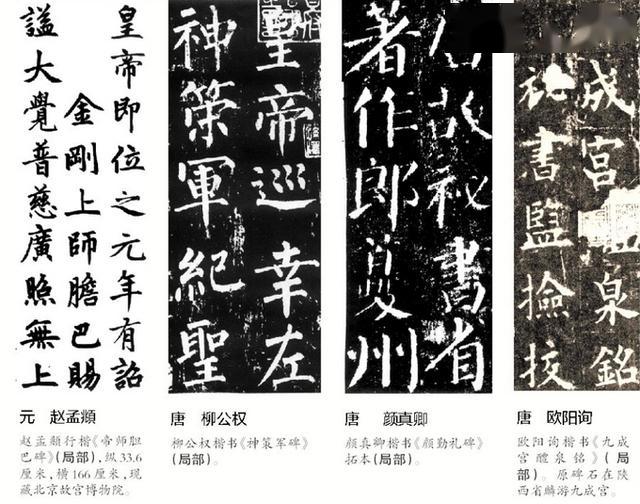 皇帝即位之元年有詔
金剛上師膽巴賜
謚大覺普慈廣照無上
元 赵孟頫
赵孟頫行楷《帝师胆
巴碑》(局部),纵33.6
厘米,横166厘米,现
藏北京故宫博物院。
皇帝巡幸左
神策軍紀聖
唐 柳公权
柳公权楷书《神策军碑》
(局部)。
故祕書省
著作郎夔州
唐 颜真卿
颜真卿楷书《颜勤礼碑》
拓本(局部)。
成宮泉銘
祕書監撿挍
唐 欧阳询
欧阳询楷书《九成
宫醴泉铭》(局
部)。原碑石在陕
西省麟游九成宫。